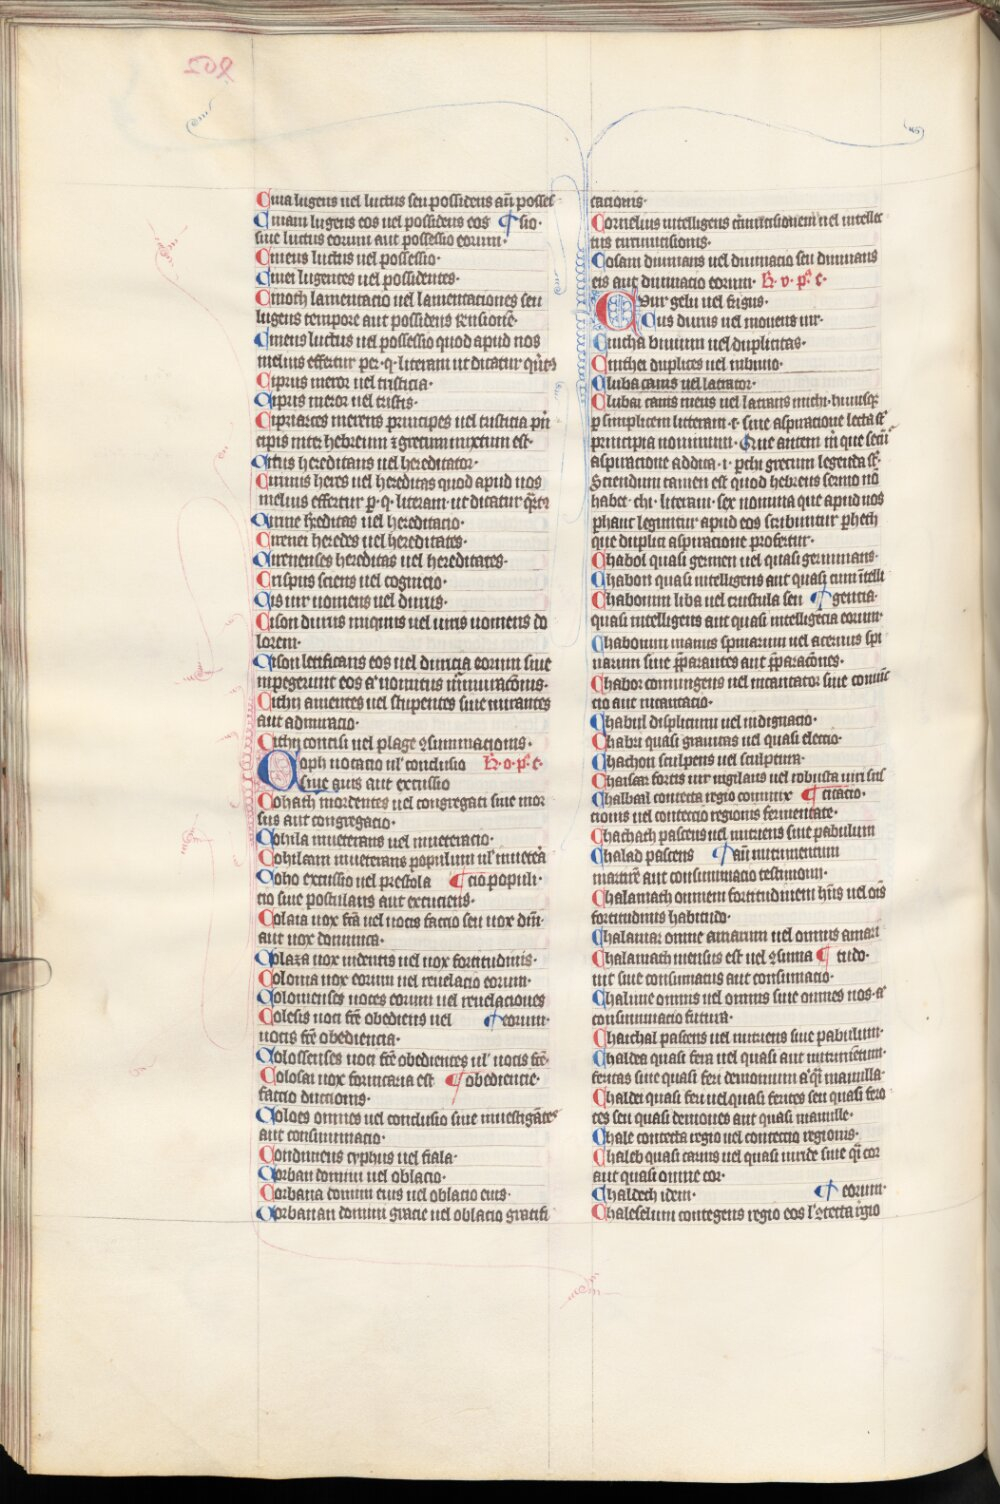 Cina lugens uel luctus seu possidens aut posses
Cinam lugens eos uel possidens eos ¶ sio·
siue luctus eorum aut possessio eorum·
Cineus luctus uel possessio·
Cinei lugentes uel possidentes·
Cinoth lamentacio uel lamentaciones seu
lugens tempore aut possidens
Cineus luctus uel possessio quod apud nos
melius effertur per ·q· literam ut dicatur
Ciprus meror uel tristicia·
Cipris meror uel tristis·
Cipriarces merens principes uel tristicia pn
cipis inter hebreum ⁊ grecum mixtum est·
Citus hereditans uel hereditator·
Cirinus heres uel hereditas quod apud nos
melius effertur p ·q· literam ut dicatur
Cirine hereditas uel hereditacio·
Cirenei heredes uel hereditates·
Cirenenses hereditas uel hereditates·
Crispus sciens uel cognicio·
Cis uir uomens uel durus·
Cison durus iniquus uel uiris uomens do
lorem·
Cison letificans eos uel duricia eorum siue
inpegerunt eos a uomitus
Cithij amentes uel stupentes siue mirantes
aut admiracio·
Cithij concisi uel plage ɔsummacionis·
Coph uocacio ul' conclusio
siue auis aut excussio
Cohath mordentes uel congregati siue mor
sus aut congregacio·
Cohila inueterans uel inueteracio·
Cohileam inueterans populum ul' inueterã
Coho excussio uel prestola ¶ cio populi·
cio siue postulans aut excuciens·
Colaia uox fcã uel uocis faccio seu uox dñi·
aut uox dominica·
Colaza uox uidentis uel uox fortitudinis·
Colonia uox eorum uel reuelacio eorum·
Colonienses uoces eorum uel reuelaciones
Colesis uoci fcẽ obediens uel ¶ eorum·
uocis fcẽ obediencia·
Colossenses uoci fcẽ obedientes ul' uocis fcẽ·
Colosai uox formicaria est ¶ obediencie·
faccio diccionis·
Coloes omnes uel conclusio siue
aut consummacio·
Condimens cyphus uel fiala·
Corban donum uel oblacio·
Corbana donum eius uel oblacio eius·
Corbanan donum gracie uel oblacio gratifi
cacionis·
Cornelius intelligens circumcisionem uel intellec
tus circumcisionis·
Cosam diuinans uel diuinacio seu diuinans
eis aut diuinacio eorum·
Cuir gelu uel frigus·
Cus durus uel mouens uir·
Cuicha biuium uel duplicitas·
Cinthei duplices uel in biuio·
Cluba canis uel latrator·
Clubai canis meus uel latrans michi· hucusq
p simplicem litteram ·c· siue aspiracione lecta st
principia nominum· Que autem in que secũ
aspiracione addita ·i· p chi grecum legenda st·
Sciendum tamen est quod hebreus sermo nõ
habet ·chi· literam· sex nomina que apud nos
phaut leguntur apud eos scribuntur p heth
que duplici aspiracione profertur·
Chabol quasi germen uel quasi germinans·
Chabon quasi intelligens aut quasi cum itelli
Chabonim liba uel crustula seu ¶ gencia·
quasi intelligens aut quasi intelligecia eorum·
Chabonim manus spinarum uel aceruus spi
narum siue pparantes aut pparacões·
Chabor coniungens uel incantator siue coniũc
cio aut incantacio·
Chabul displicium uel indignacio·
Chabri quasi grauitas uel quasi electio·
Chachon sculpens uel sculptura·
Chaisar fortis uir uigilans uel robusta uiri sus
Chalbail contecta regio communis ¶ citacio·
cionis uel contectio regionis fermentate·
Chachach pascens uel nutriens siue pabulum
Chalad pascens ¶ aut nutrimentum
martire aut consummacio testimonii·
Chalamach omnem fortitudinem hñs uel oĩs
fortitudinis habitudo·
Chalamar omne amarum uel omnis amari
Chalamach mensus est uel ɔsuma ¶ tudo·
uit siue consumatus aut consumacio·
Chalnne omnis uel omnis siue omnes nos· a
consummacio futura·
Chalchal pascens uel nutriens siue pabulum·
Chaldea quasi fera uel quasi aut
feritas siue quasi feri demonium a' q̃i mamilla·
Chaldei quasi feri uel quasi feritas seu quasi fero
ces seu quasi demones aut quasi mamille·
Chale contecta regio uel contectio regionis·
Chaleb quasi canis uel quasi uiride siue q̃i cor
aut quasi omne cor·
Chaldech idem· ¶ eorum·
Chaleselum contegens regio eos l' ɔtecta rigio